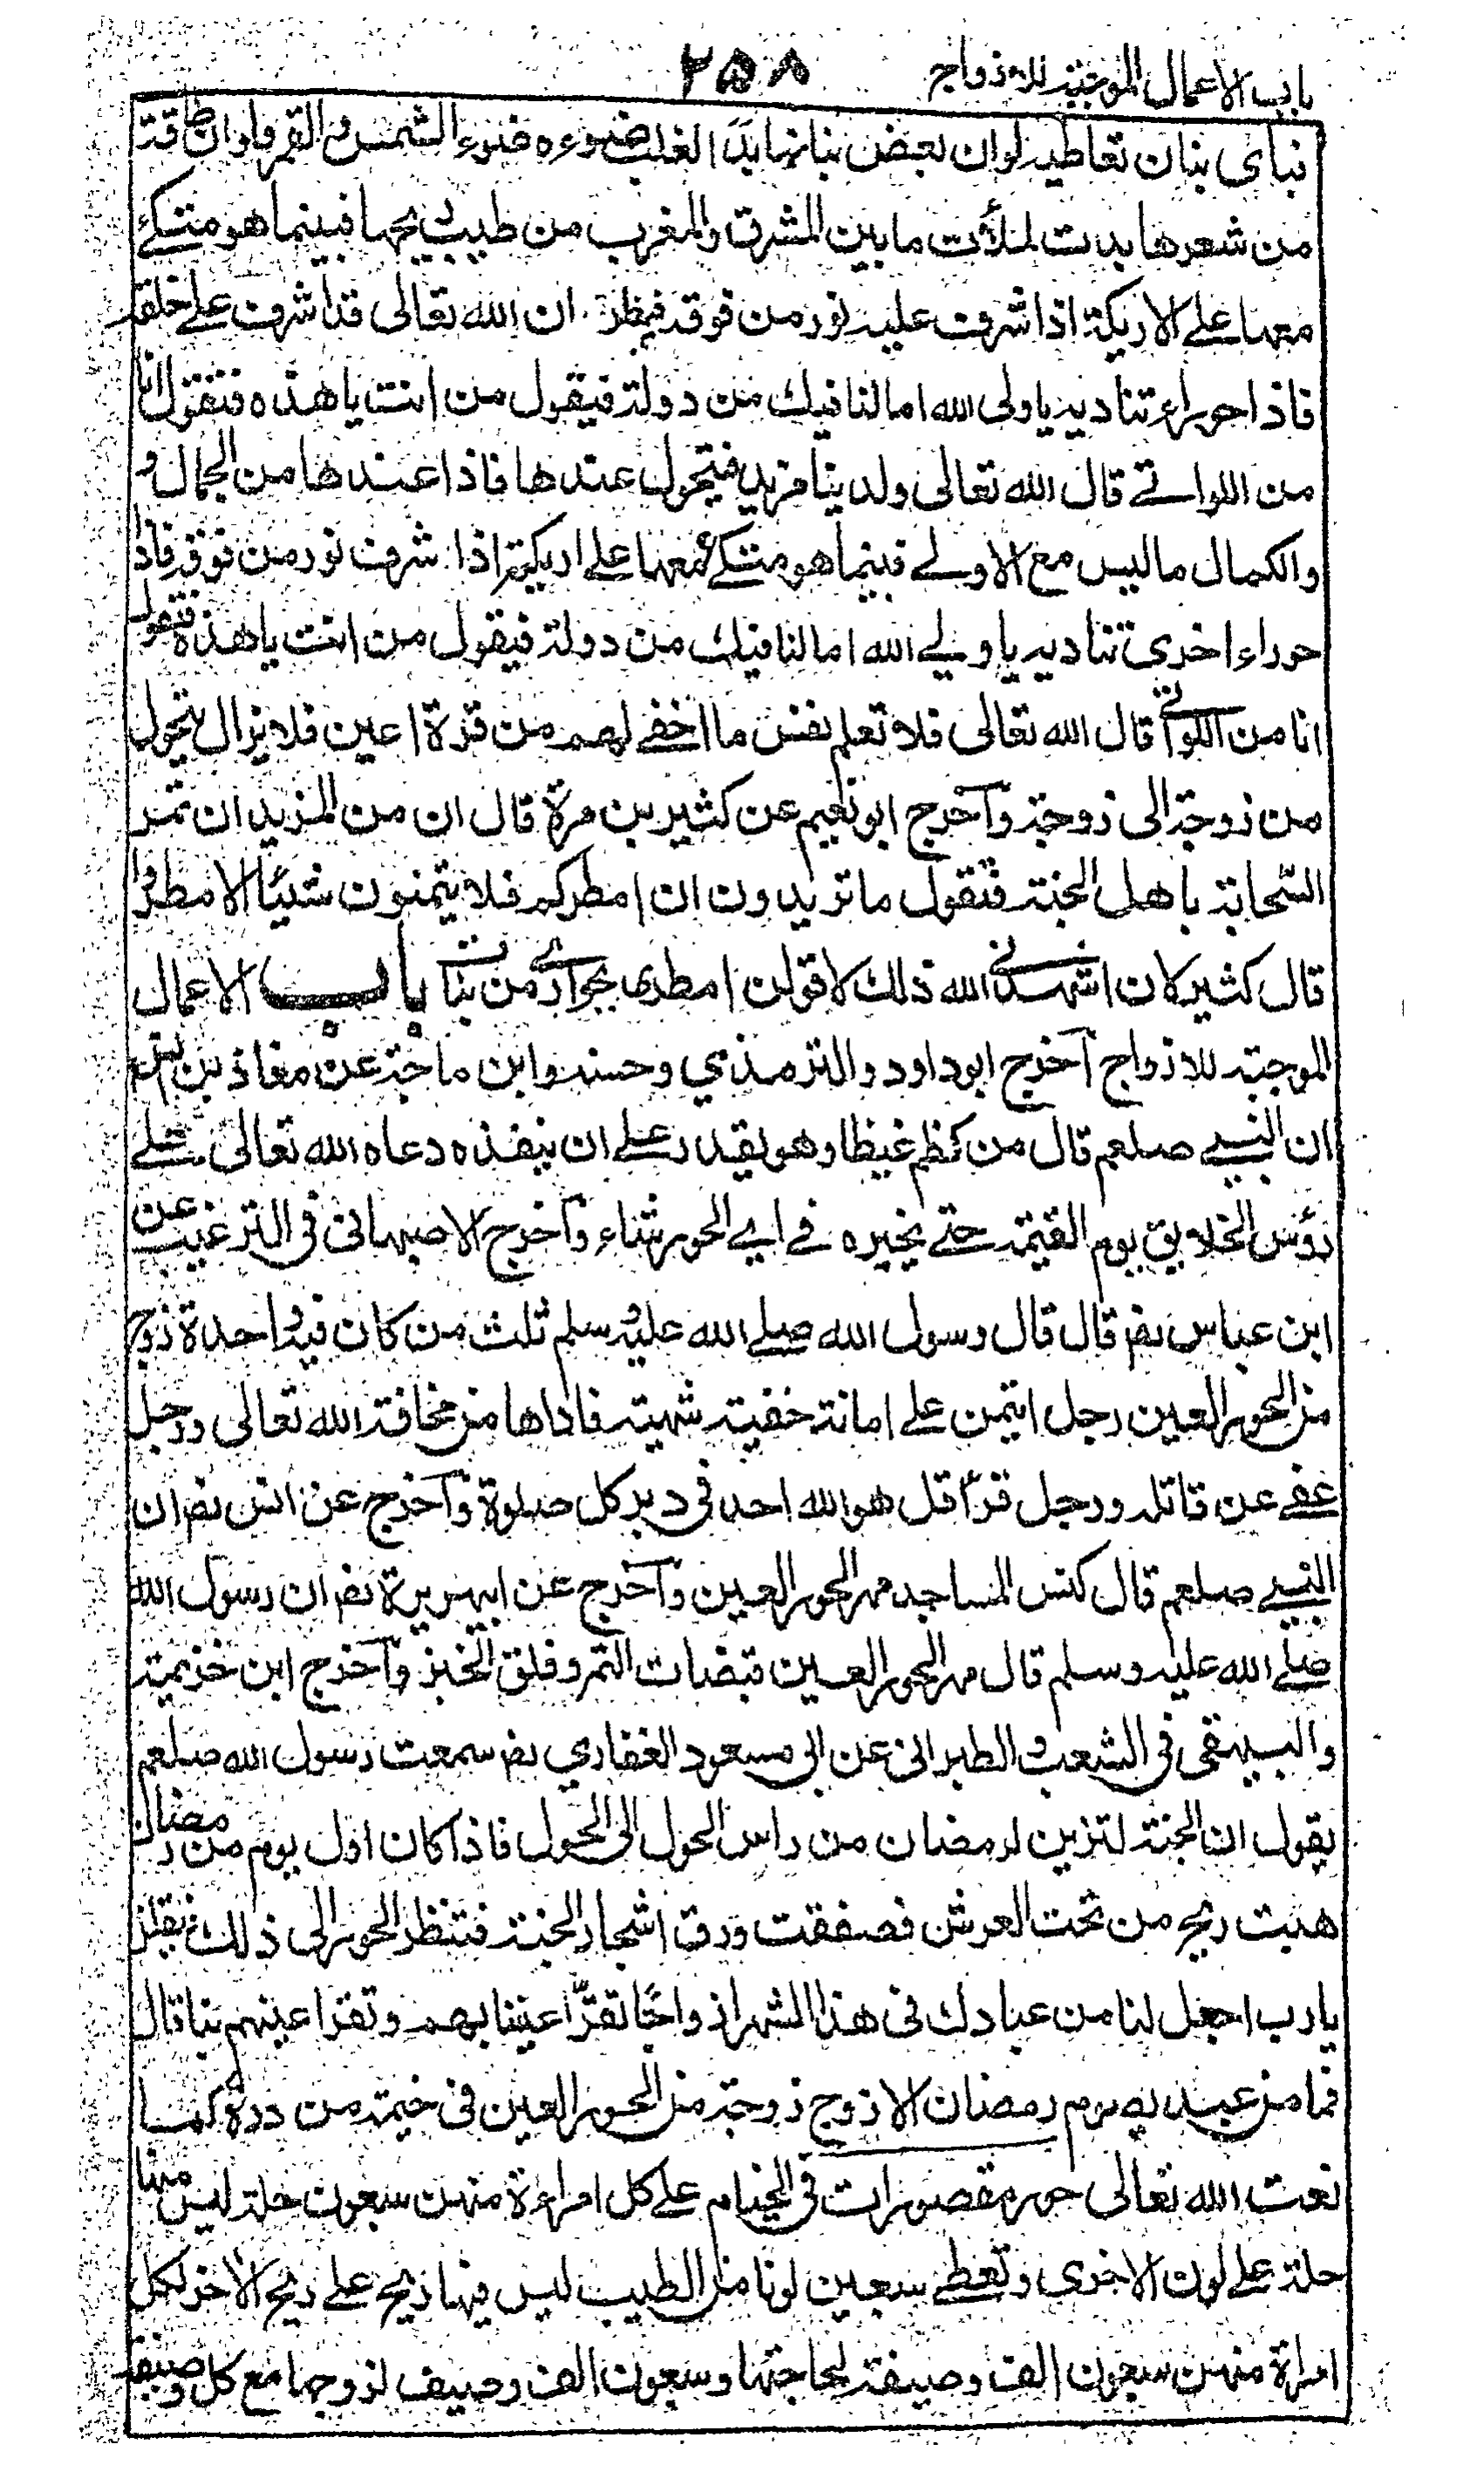 باب الاعمال الموجبة للازواج ٢٥٨
فباى بنان تعاطيه لو ان بعض بنانها بدا لغلب ضوءه ضوء الشمس والقمر ولو ان طاقة
من شعرها بدت لملأت ما بين المشرق والمغرب من طيب ريحها فبينما هو متكئ
معها على الاريكة اذ اشرف عليه نور من فوقه فيظن ان الله تعالى قد اشرف على خلقه
فاذا حوراء تناديه يا ولى الله اما لنا فيك من دولة فيقول من انت يا هذه فتقول انا
من اللواتى قال الله تعالى ولدينا مزيد فيتحول عندها فاذا عندها من الجمال و
والكمال ما ليس مع الاولى فبينما هو متكئ معها على اريكته اذا شرف نور من فوقه فاذا
حوراء اخرى تناديه يا ولى الله اما لنا فيك من دولة فيقول من انت يا هذه فتقول
انا من اللواتى قال الله تعالى فلا تعلم نفس ما اخفى لهم من قرة اعين فلا يزال يتحول
من زوجة الى زوجة وآخرج ابو نعيم عن كثير بن مرة قال ان من المزيد ان تمر
السحابة باهل الجنة فتقول ما تريدون ان امطركم فلا يتمنون شيئا الا مطروا
قال كثير لان اشهدنى الله ذلك لاقولن امطرى بجوارى من بنات باب الاعمال
الموجبة للازواج آخرج ابو داود والترمذي وحسنه وابن ماجة عن معاذ بن انس
ان النبى صلعم قال من كظم غيظا وهو يقدر على ان ينفذه دعاه الله تعالى على
رؤس الخلايق يوم القيمة حتى يخيره فى اى الحور شاء وآخرج الاصبهانى فى الترغيب عن
ابن عباس رضه قال قال رسول الله صلى الله عليه وسلم ثلث من كان فيه واحدة زوج
من الحور العين رجل ايتمن على امانة خفية شهية فاداها من مخافة الله تعالى ورجل
عفى عن قاتله ورجل قرأ قل هو الله احد فى دبر كل صلوة وآخرج عن انس رضه ان
النبى صلعم قال كنس المساجد مهر الحور العين وآخرج عن ابيهريرة رضه ان رسول الله
صلى الله عليه وسلم قال مهر الحور العين قبضات التمر وفلق الخبز وآخرج ابن خزيمة
والبيهقى فى الشعب والطبرانى عن ابى مسعود الغفاري رضه سمعت رسول الله صلعم
يقول ان الجنة لتزين لرمضان من راس الحول الى الحول فاذا كان اول يوم من رمضان
هبت ريح من تحت العرش فصفقت ورق اشجار الجنة فتنظر الحور الى ذلك فيقلن
يارب اجعل لنا من عبادك فى هذا الشهر ازواجا تقر اعيننا بهم وتقر اعينهم بنا قال
فما من عبد يصوم رمضان الا زوج زوجة من الحور العين فى خيمة من درة كما
نعت الله تعالى حور مقصورات فى الخيام على كل امراءة منهن سبعون حلة ليس منها
حلة على لون الاخرى وتعطى سبعين لونا من الطيب ليس فيها ريح على ريح الاخر لكل
امراة منهن سبعون الف وصيفة لحاجتها وسبعون الف وصيف لزوجها مع كل وصيفة